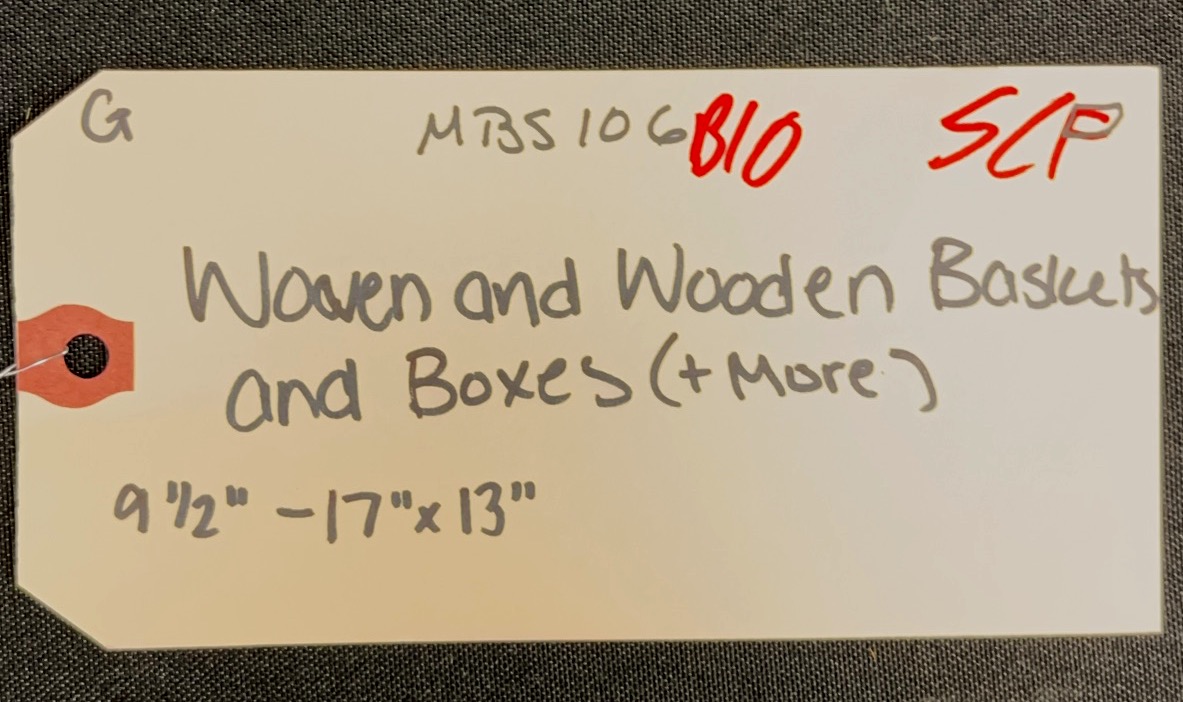 G MBS106 B10 S/P
Woven and Wooden Baskets
and Boxes (+ More)
9 1/2" - 17" x 13"